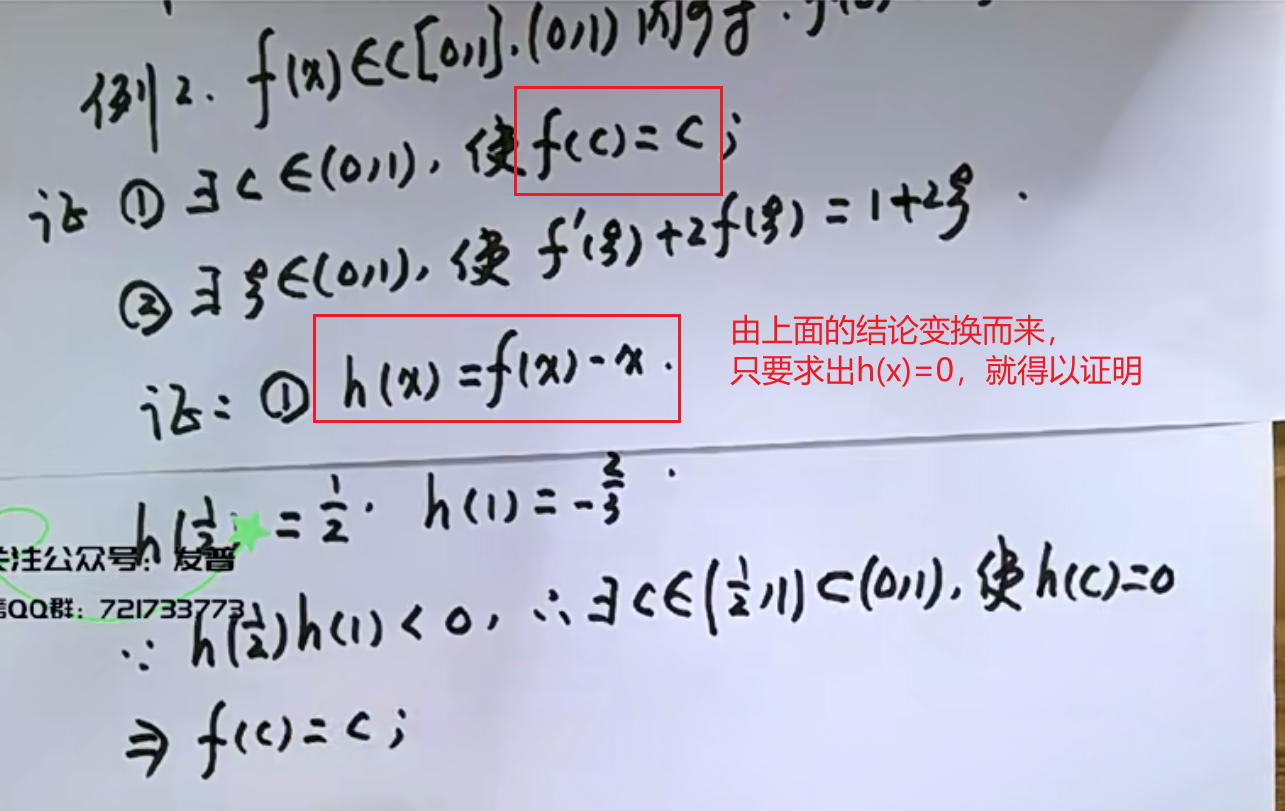 例2. f(x)∈C[0,1], (0,1)内可导.
证 ① ∃ c∈(0,1), 使 f(c)=c;
② ∃ ξ∈(0,1), 使 f'(ξ)+2f(ξ)=1+2ξ.
由上面的结论变换而来，
只要求出h(x)=0，就得以证明
证: ① h(x)=f(x)-x.
h(1/2)=1/2. h(1)=-2/3.
关注公众号：发普
QQ群：721733773
∵ h(1/2)h(1)<0, ∴ ∃ c∈(1/2,1)⊂(0,1), 使 h(c)=0
⇒ f(c)=c;